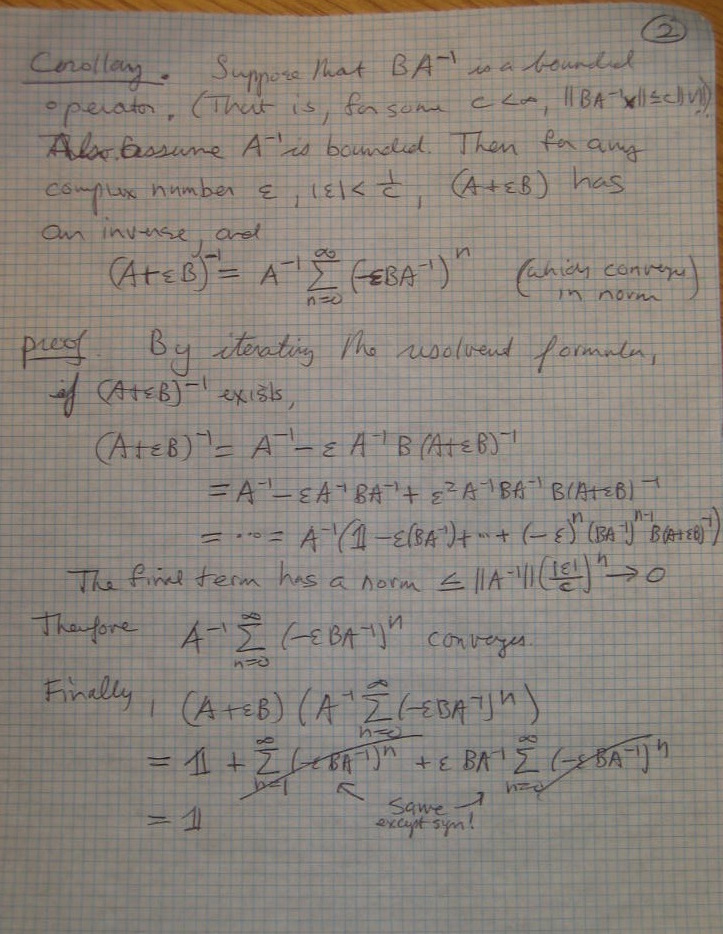 ②
Corollary. Suppose that BA⁻¹ is a bounded
operator. (That is, for some c<∞, ||BA⁻¹x||≤c||x||)
Also assume A⁻¹ is bounded. Then for any
complex number ε, |ε|< 1/c, (A+εB) has
an inverse, and
(A+εB)⁻¹ = A⁻¹ ∑_{n=0}^{∞} (-εBA⁻¹)ⁿ (which converges
in norm)
proof. By iterating the resolvent formula,
if (A+εB)⁻¹ exists,
(A+εB)⁻¹ = A⁻¹ - ε A⁻¹ B (A+εB)⁻¹
= A⁻¹ - εA⁻¹BA⁻¹ + ε² A⁻¹BA⁻¹ B(A+εB)⁻¹
= ··· = A⁻¹(𝟙 - ε(BA⁻¹)+ ··· + (-ε)ⁿ (BA⁻¹)ⁿ⁻¹ B(A+εB)⁻¹)
The final term has a norm ≤ ||A⁻¹|| (|ε|/c)ⁿ → 0
Therefore A⁻¹ ∑_{n=0}^{∞} (-εBA⁻¹)ⁿ converges.
Finally, (A+εB) (A⁻¹ ∑_{n=0}^{∞} (-εBA⁻¹)ⁿ)
= 𝟙 + ∑_{n=1}^{∞} (-εBA⁻¹)ⁿ + ε BA⁻¹ ∑_{n=0}^{∞} (-εBA⁻¹)ⁿ
= 𝟙
Same
except sign!